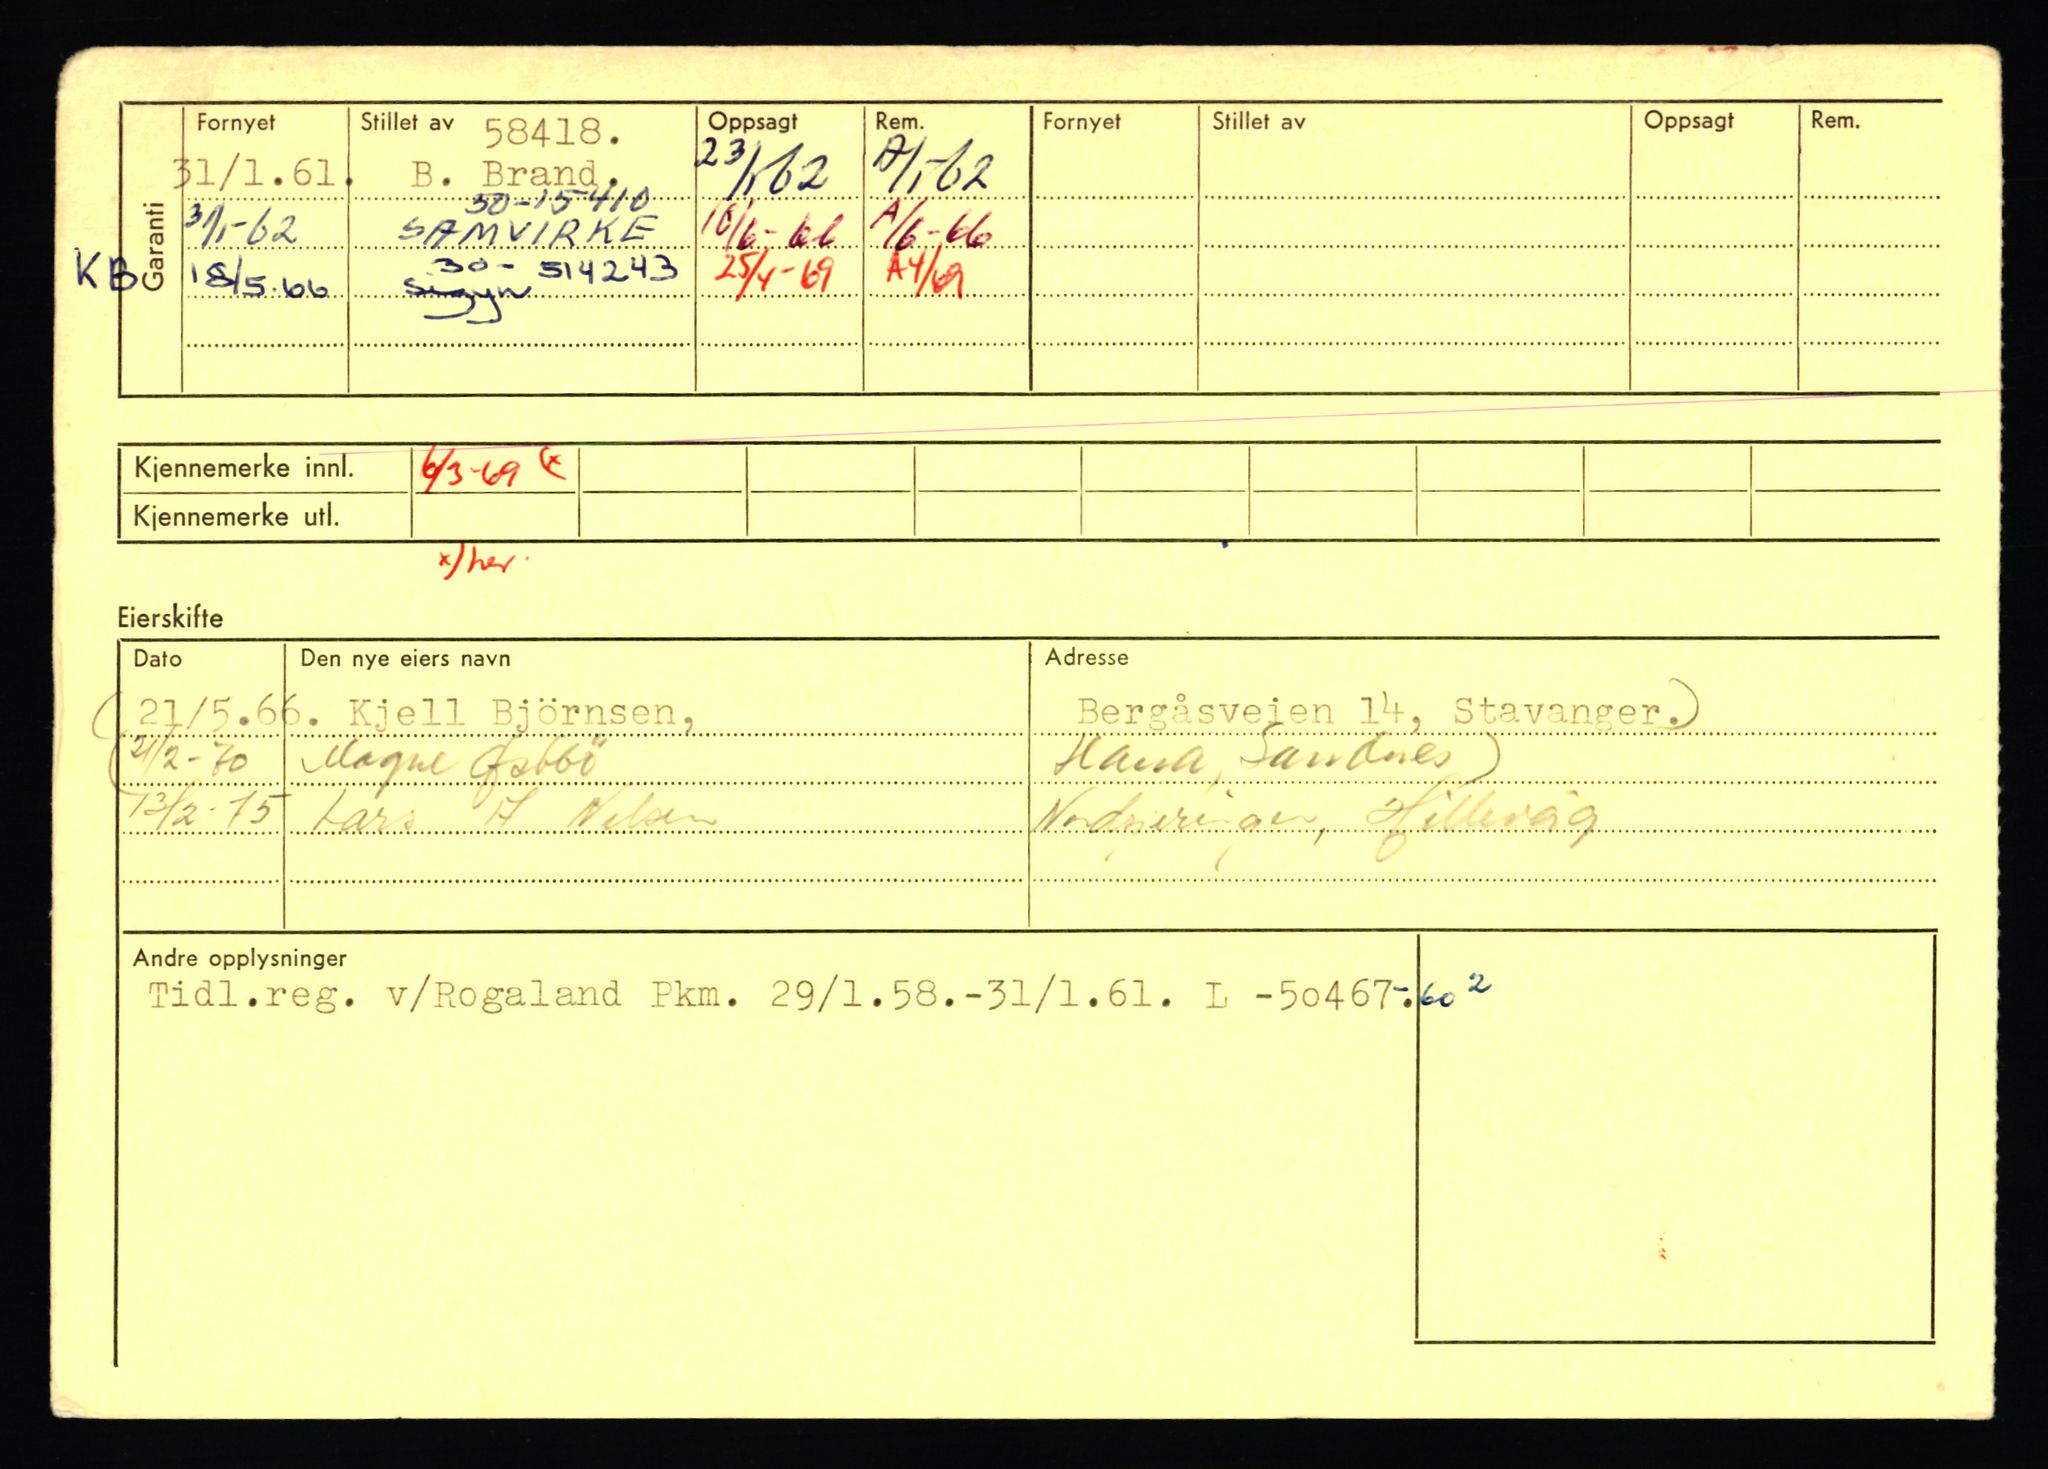 Garanti
Fornyet Stillet av Oppsagt Rem. Fornyet Stillet av Oppsagt Rem.
58418.
31/1.61. B. Brand. 23/1-62 A/1-62
30-15410
31/1-62 SAMVIRKE 10/6-66 A/6-66
30-514243
KB 18/5.66 Sigyn 25/4-69 A4/69
Kjennemerke innl. 6/3-69 (x
Kjennemerke utl.
x) her.
Eierskifte
Dato Den nye eiers navn Adresse
(21/5.66. Kjell Björnsen, Bergåsveien 14, Stavanger.)
(21/2-70 Magne Hana, Sandnes)
13/2-75 Lars A Nilsen Hillevåg
Andre opplysninger
Tidl.reg. v/Rogaland Pkm. 29/1.58.-31/1.61. L -50467.-60 2